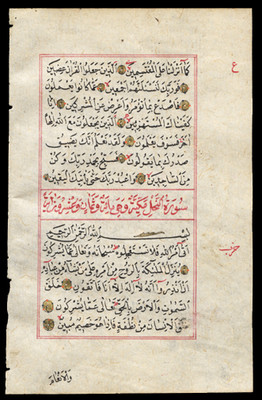 ع
كَمَا أَنْزَلْنَا عَلَى الْمُقْتَسِمِينَ الَّذِينَ جَعَلُوا الْقُرْآنَ عِضِينَ
فَوَرَبِّكَ لَنَسْئَلَنَّهُمْ أَجْمَعِينَ عَمَّا كَانُوا يَعْمَلُونَ
فَاصْدَعْ بِمَا تُؤْمَرُ وَأَعْرِضْ عَنِ الْمُشْرِكِينَ إِنَّا
كَفَيْنَاكَ الْمُسْتَهْزِئِينَ الَّذِينَ يَجْعَلُونَ مَعَ اللّٰهِ إِلٰهًا
آخَرَ فَسَوْفَ يَعْلَمُونَ وَلَقَدْ نَعْلَمُ أَنَّكَ يَضِيقُ
صَدْرُكَ بِمَا يَقُولُونَ فَسَبِّحْ بِحَمْدِ رَبِّكَ وَكُنْ
مِنَ السَّاجِدِينَ وَاعْبُدْ رَبَّكَ حَتَّى يَأْتِيَكَ الْيَقِينُ
سورة النحل مكية وهي مائة وثمان وعشرون آية
بِسْمِ اللّٰهِ الرَّحْمٰنِ الرَّحِيمِ
أَتَى أَمْرُ اللّٰهِ فَلَا تَسْتَعْجِلُوهُ سُبْحَانَهُ وَتَعَالَى عَمَّا يُشْرِكُونَ
حزب
يُنَزِّلُ الْمَلٰئِكَةَ بِالرُّوحِ مِنْ أَمْرِهِ عَلَى مَنْ يَشَاءُ مِنْ عِبَادِهِ
أَنْ أَنْذِرُوا أَنَّهُ لَا إِلٰهَ إِلَّا أَنَا فَاتَّقُونِ خَلَقَ
السَّمٰوَاتِ وَالْأَرْضَ بِالْحَقِّ تَعَالَى عَمَّا يُشْرِكُونَ
خَلَقَ الْإِنْسَانَ مِنْ نُطْفَةٍ فَإِذَا هُوَ خَصِيمٌ مُبِينٌ
والانعام